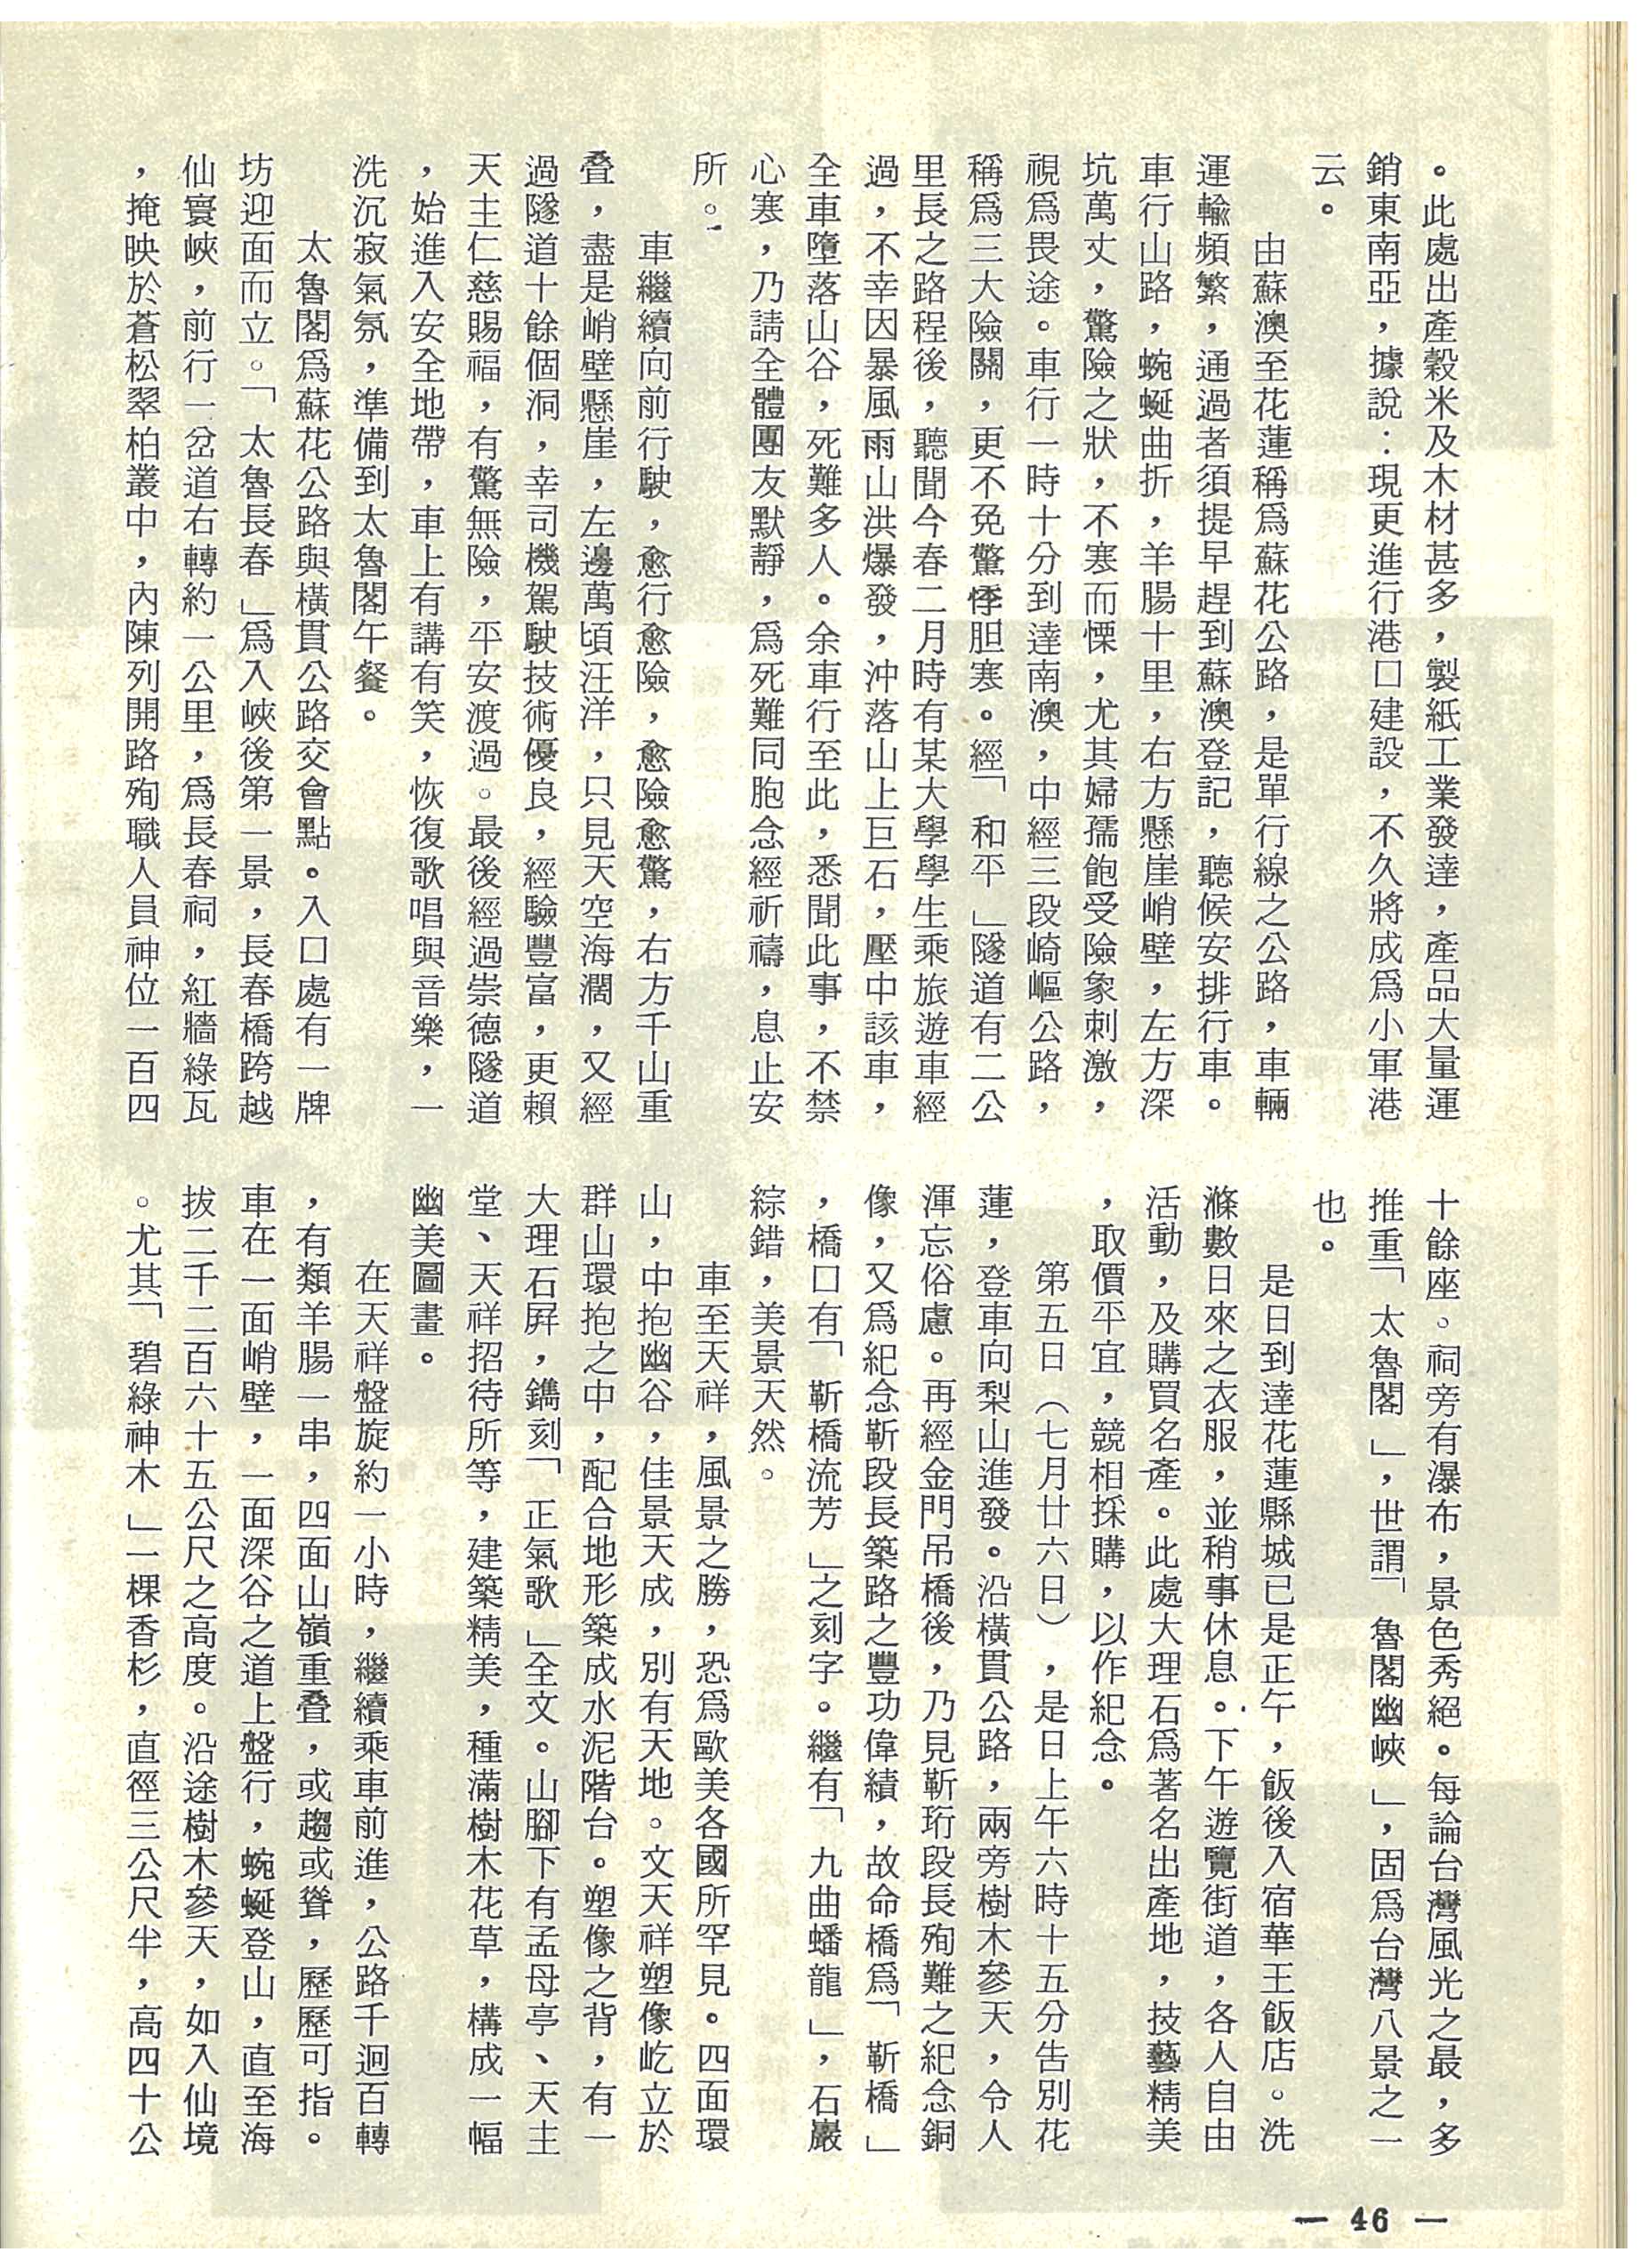 。此處出產穀米及木材甚多，製紙工業發達，產品大量運
銷東南亞，據說：現更進行港口建設，不久將成爲小軍港
云。
由蘇澳至花蓮稱爲蘇花公路，是單行線之公路，車輛
運輸頻繁，通過者須提早趕到蘇澳登記，聽候安排行車。
車行山路，蜿蜒曲折，羊腸十里，右方懸崖峭壁，左方深
坑萬丈，驚險之狀，不寒而慄，尤其婦孺飽受險象刺激，
視爲畏途。車行一時十分到達南澳，中經三段崎嶇公路，
稱爲三大險關，更不免驚悸胆寒。經「和平」隧道有二公
里長之路程後，聽聞今春二月時有某大學學生乘旅遊車經
過，不幸因暴風雨山洪爆發，沖落山上巨石，壓中該車，
全車墮落山谷，死難多人。余車行至此，悉聞此事，不禁
心寒，乃請全體團友默靜，爲死難同胞念經祈禱，息止安
所。
車繼續向前行駛，愈行愈險，愈險愈驚，右方千山重
叠，盡是峭壁懸崖，左邊萬頃汪洋，只見天空海濶，又經
過隧道十餘個洞，幸司機駕駛技術優良，經驗豐富，更賴
天主仁慈賜福，有驚無險，平安渡過。最後經過崇德隧道
，始進入安全地帶，車上有講有笑，恢復歌唱與音樂，一
洗沉寂氣氛，準備到太魯閣午餐。
太魯閣爲蘇花公路與橫貫公路交會點。入口處有一牌
坊迎面而立。「太魯長春」爲入峽後第一景，長春橋跨越
仙寰峽，前行一岔道右轉約一公里，爲長春祠，紅牆綠瓦
，掩映於蒼松翠柏叢中，內陳列開路殉職人員神位一百四
十餘座。祠旁有瀑布，景色秀絕。每論台灣風光之最，多
推重「太魯閣」，世謂「魯閣幽峽」，固爲台灣八景之一
也。
是日到達花蓮縣城已是正午，飯後入宿華王飯店。洗
滌數日來之衣服，並稍事休息。下午遊覽街道，各人自由
活動，及購買名產。此處大理石爲著名出產地，技藝精美
，取價平宜，競相採購，以作紀念。
第五日（七月廿六日），是日上午六時十五分告別花
蓮，登車向梨山進發。沿橫貫公路，兩旁樹木參天，令人
渾忘俗慮。再經金門吊橋後，乃見靳珩段長殉難之紀念銅
像，又爲紀念靳段長築路之豐功偉績，故命橋爲「靳橋」
，橋口有「靳橋流芳」之刻字。繼有「九曲蟠龍」，石巖
綜錯，美景天然。
車至天祥，風景之勝，恐爲歐美各國所罕見。四面環
山，中抱幽谷，佳景天成，別有天地。文天祥塑像屹立於
群山環抱之中，配合地形築成水泥階台。塑像之背，有一
大理石屏，鐫刻「正氣歌」全文。山腳下有孟母亭、天主
堂、天祥招待所等，建築精美，種滿樹木花草，構成一幅
幽美圖畫。
在天祥盤旋約一小時，繼續乘車前進，公路千迴百轉
，有類羊腸一串，四面山嶺重叠，或趨或聳，歷歷可指。
車在一面峭壁，一面深谷之道上盤行，蜿蜒登山，直至海
拔二千二百六十五公尺之高度。沿途樹木參天，如入仙境
。尤其「碧綠神木」一棵香杉，直徑三公尺半，高四十公
— 46 —